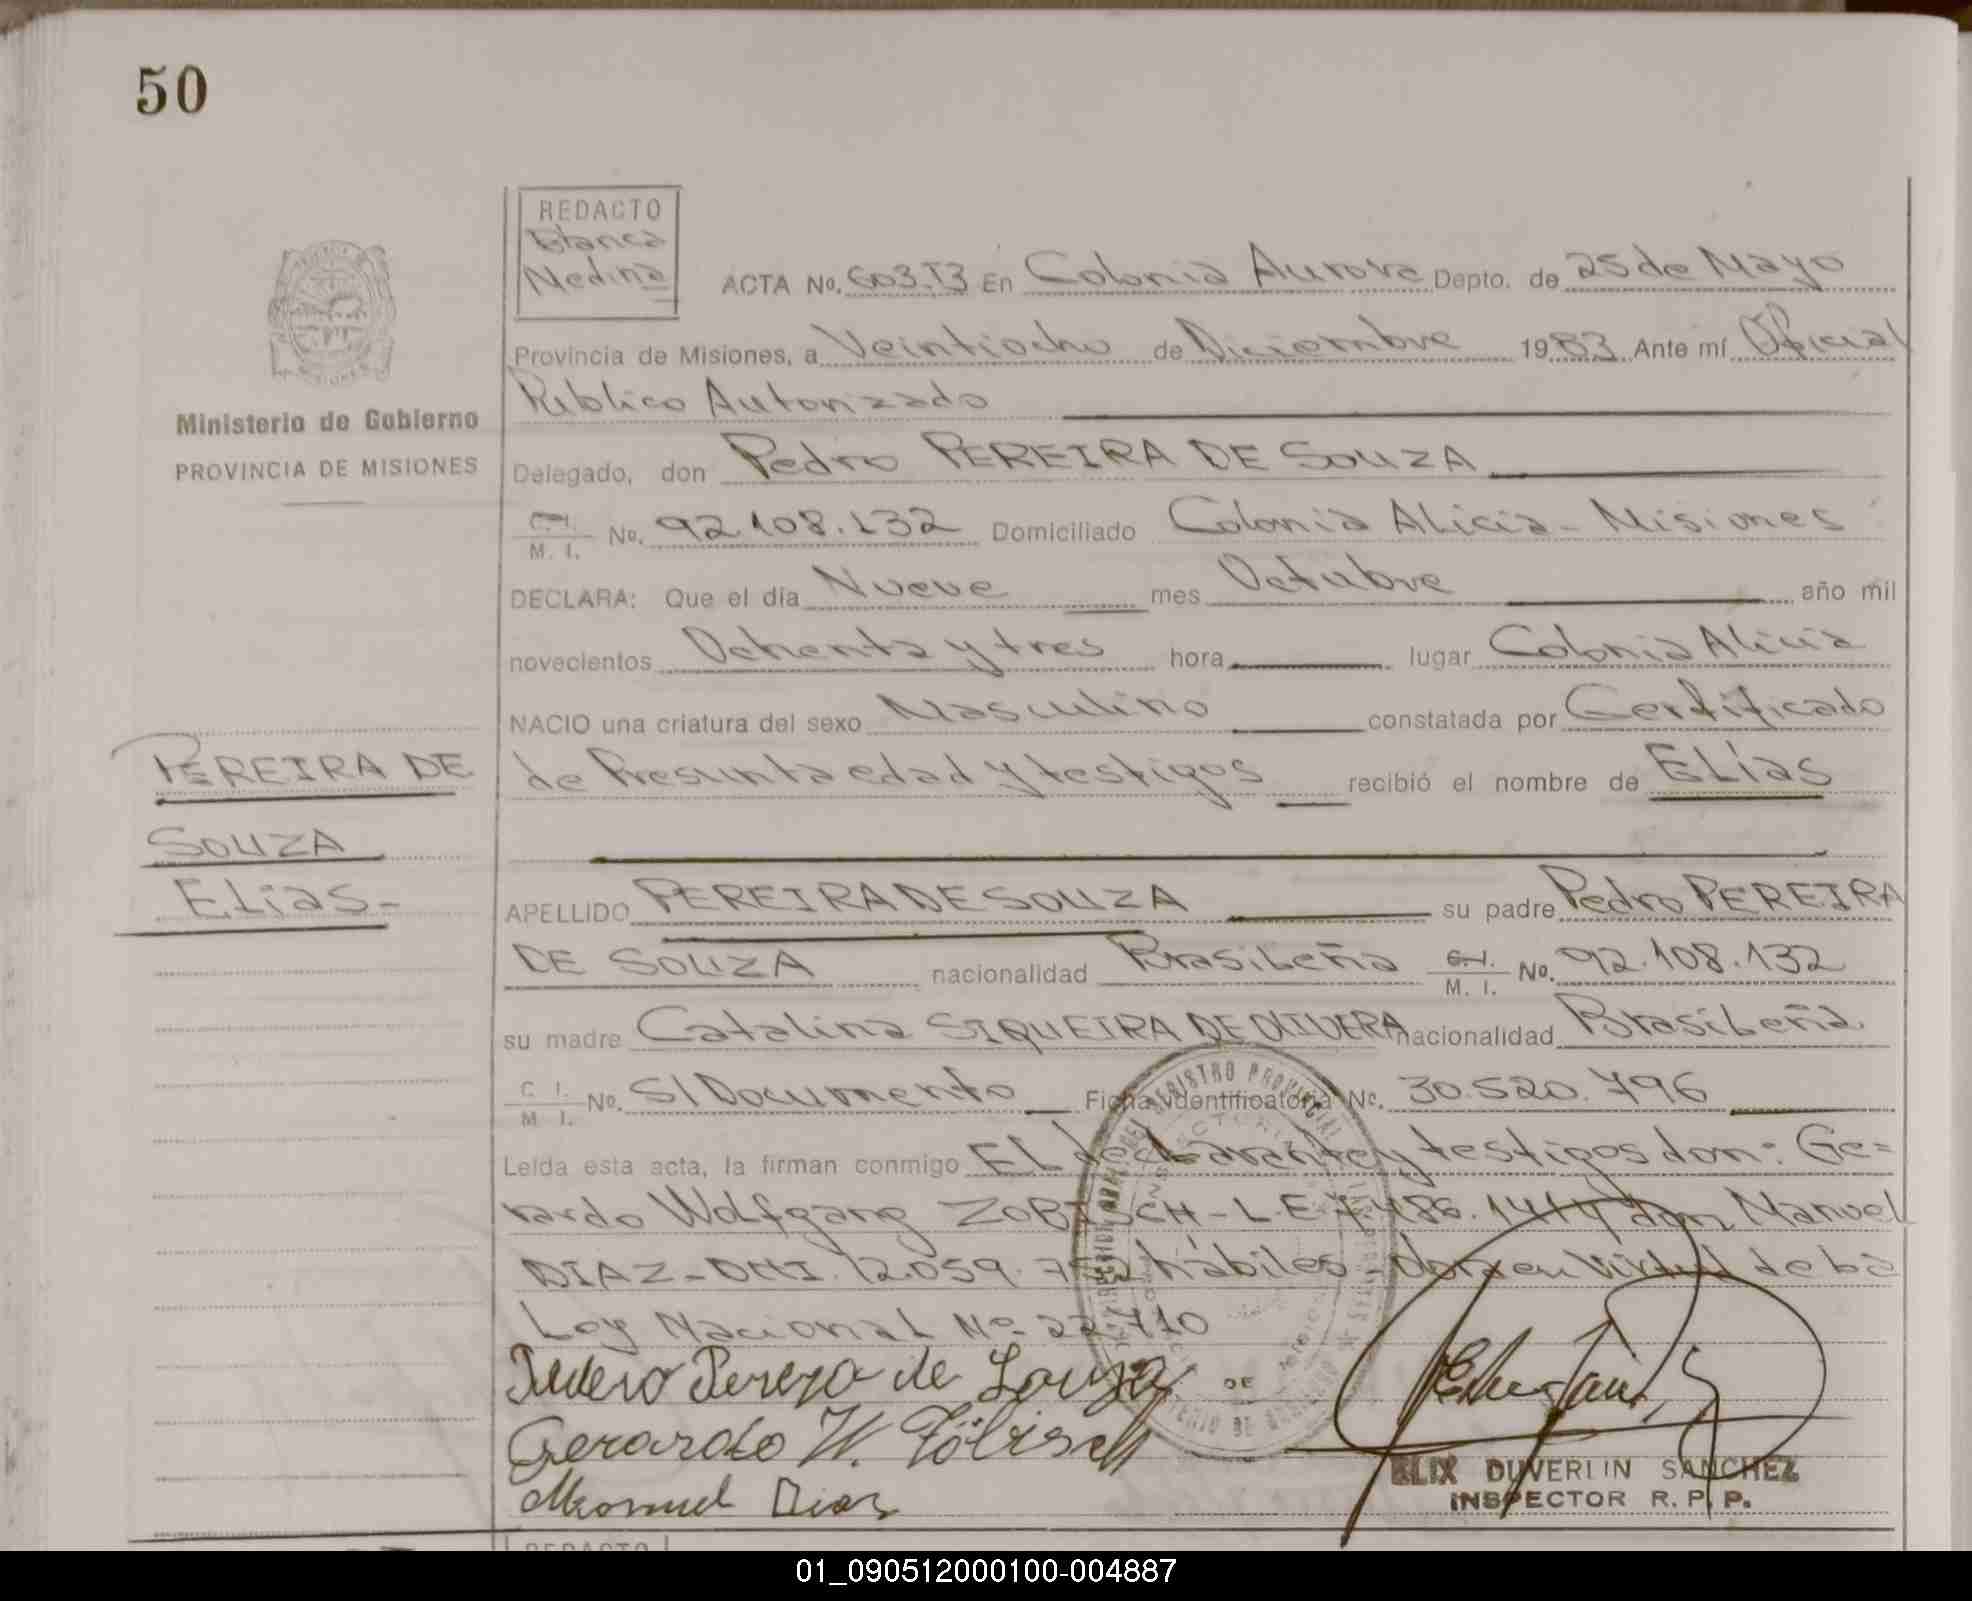 50
REDACTO
Blanca
Medina
ACTA No. 603.T3 En Colonia Aurora Depto. de 25 de Mayo
Provincia de Misiones, a Veintiocho de Diciembre 1983 Ante mí Oficial
Público Autorizado
Ministerio de Gobierno
PROVINCIA DE MISIONES
Delegado, don Pedro PEREIRA DE SOUZA
C. I. M. I. No. 92.108.132 Domiciliado Colonia Alicia - Misiones
DECLARA: Que el día Nueve mes Octubre año mil
novecientos Ochenta y tres hora lugar Colonia Alicia
NACIO una criatura del sexo Masculino constatada por Certificado
de Presunta edad y testigos recibió el nombre de Elías
PEREIRA DE
SOUZA
Elias-
APELLIDO PEREIRA DE SOUZA su padre Pedro PEREIRA
DE SOUZA nacionalidad Brasileña C. I. M. I. No. 92.108.132
su madre Catalina SIQUEIRA DE OLIVERA nacionalidad Brasileña
C. I. M. I. No. S/Documento Ficha identificatoria No. 30.520.796
Leída esta acta, la firman conmigo El declarante y testigos don: Ge=
rardo Wolfgang - L.E. 7.486.141 y don Manuel
DIAZ - DNI. 12.059. hábiles. en virtud de la
Ley Nacional No. 22.710
Pedero Pereza de Souza
Gerardo W.
Manuel Dias
DE
ELIX DUVERLIN SANCHEZ
INSPECTOR R. P. P.
REDACTO
01_090512000100-004887